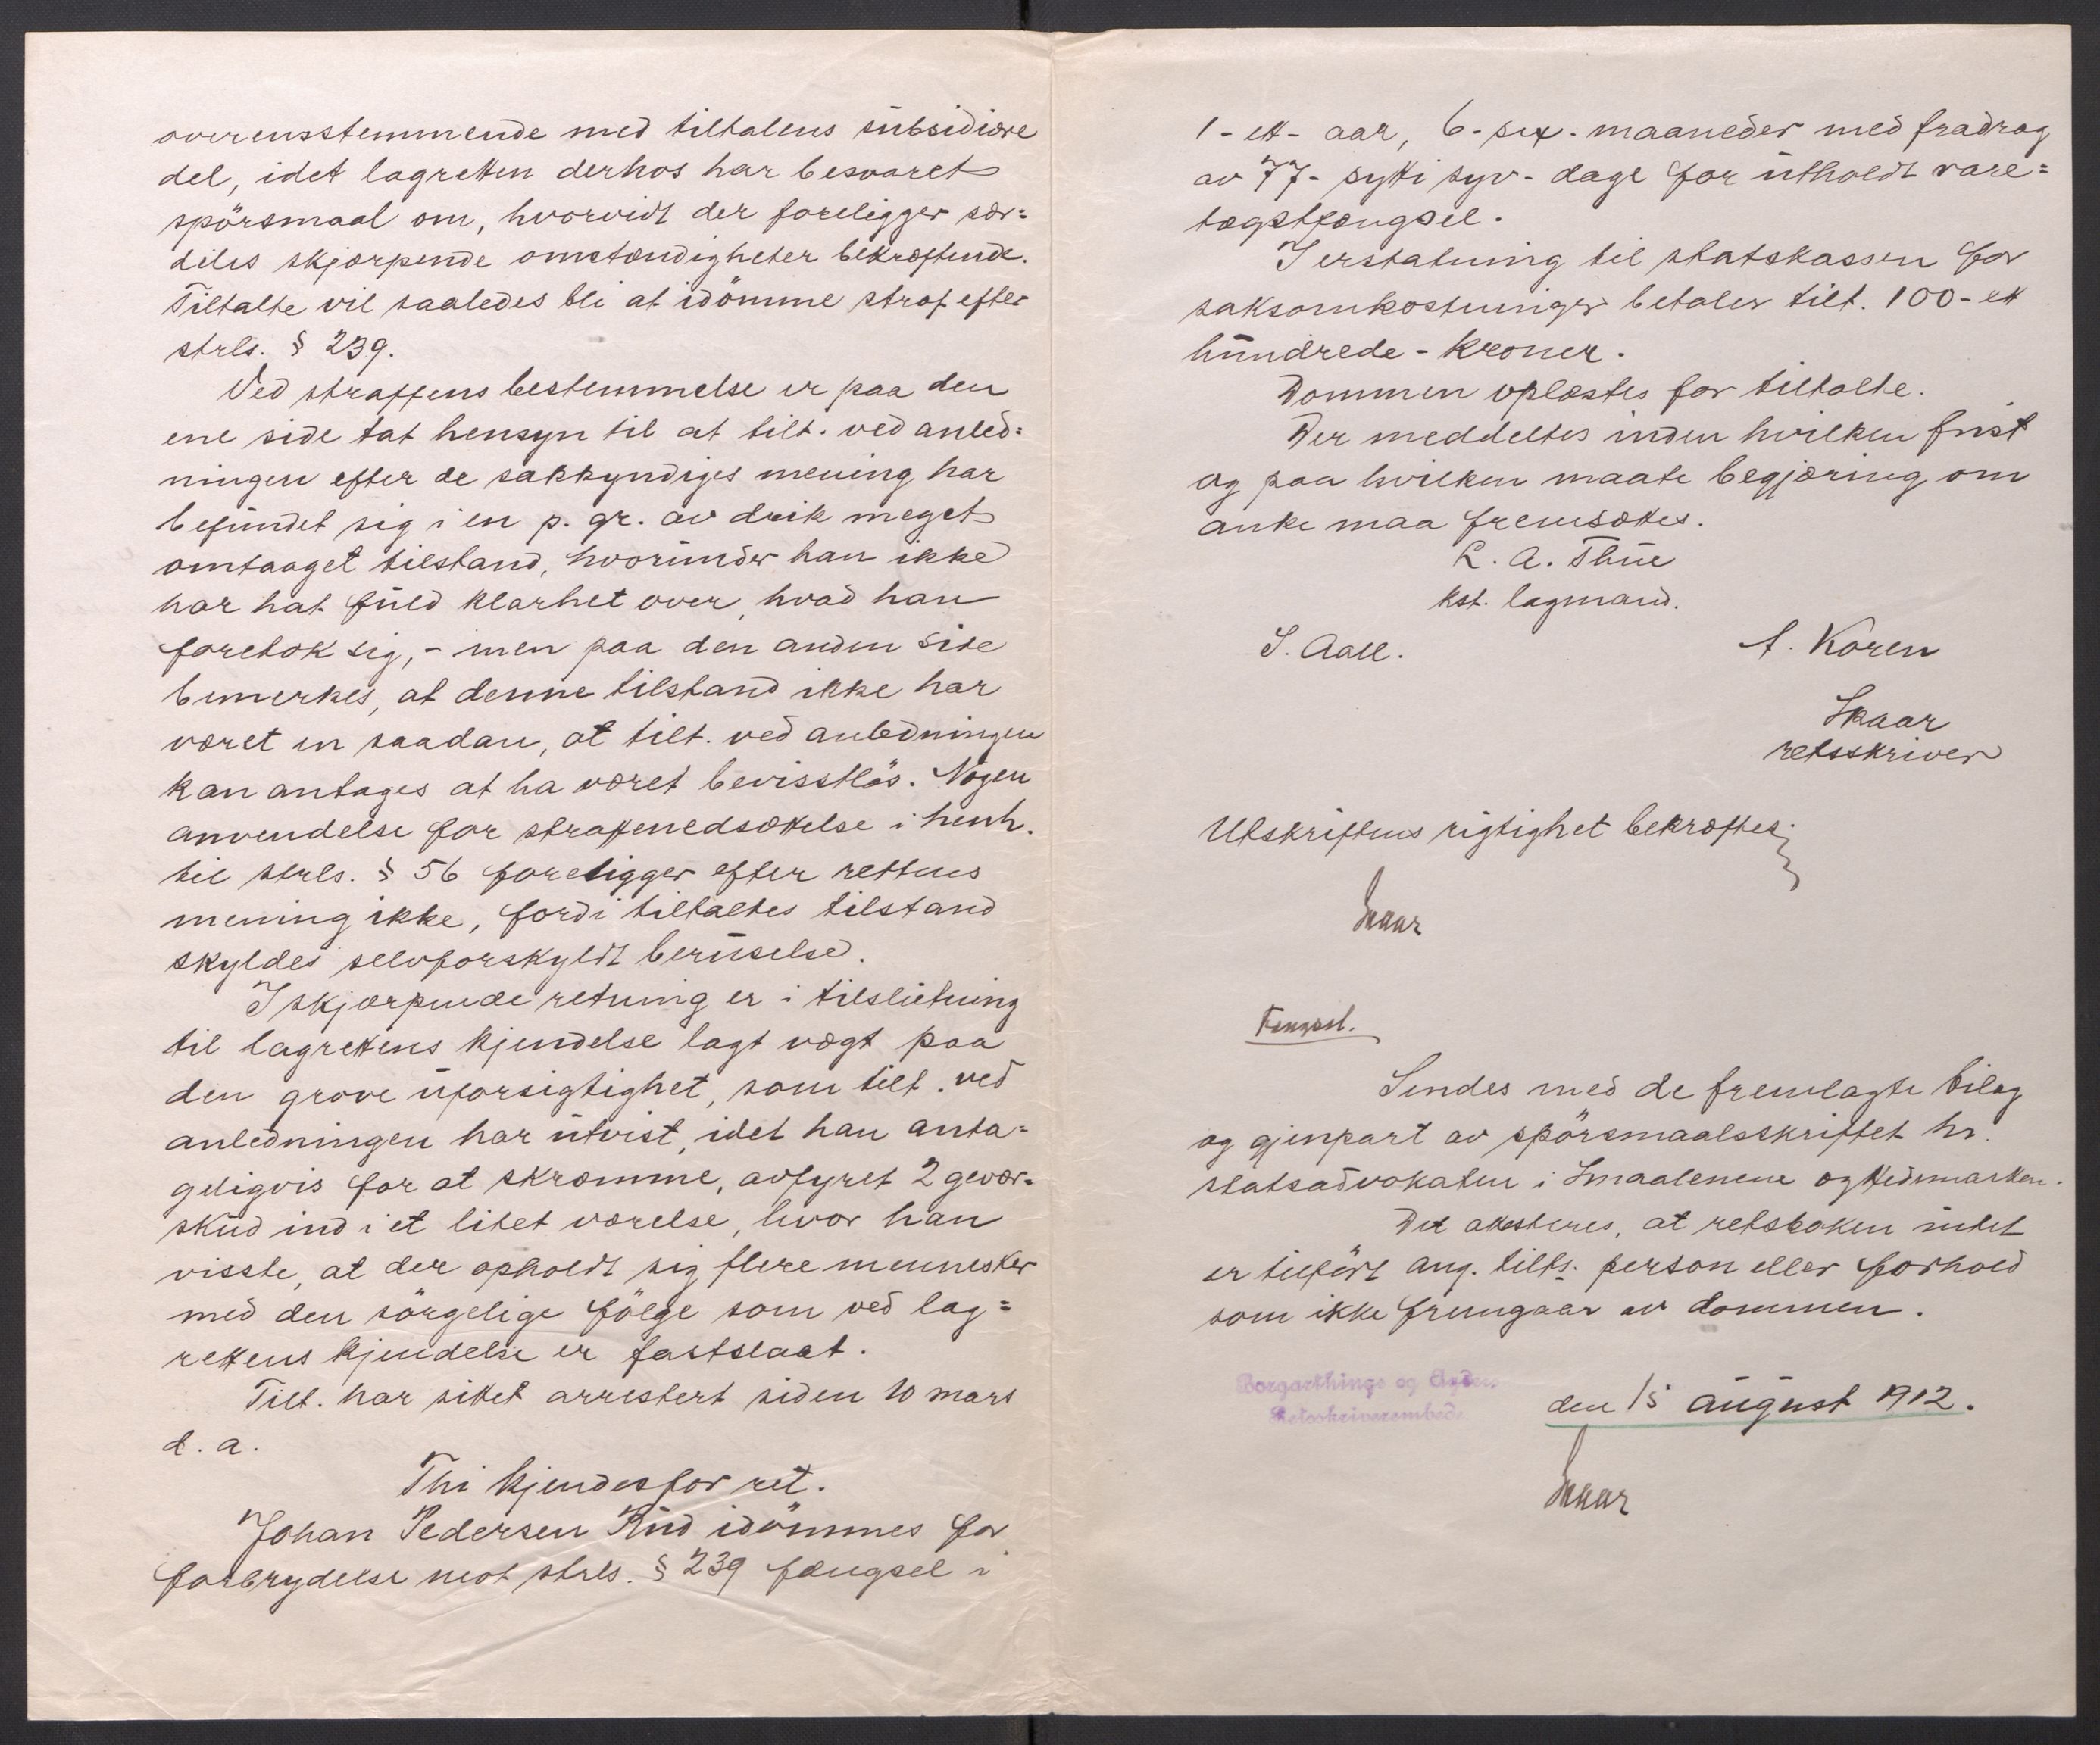 overensstemmende med tiltalens subsidiære
del, idet lagretten derhos har besvaret
spörsmaal om, hvorvidt der foreligger sær=
deles skjærpende omstændigheter bekræftende.
Tiltalte vil saaledes bli at idömme straf efter
strls. § 239.
Ved straffens bestemmelse er paa den
ene side tat hensyn til at tilt. ved anled=
ningen efter de sakkyndiges mening har
befundet sig i en p. gr. av drik meget
omtaaget tilstand, hvorunder han ikke
har hat fuld klarhet over, hvad han
foretok sig, - men paa den anden side
bemerkes, at denne tilstand ikke har
været en saadan, at tilt. ved anledningen
kan antages at ha været bevisstlös. Nogen
anvendelse for straffenedsættelse i henh.
til strls. § 56 foreligger efter rettens
mening ikke, fordi tiltaltes tilstand
skyldes selvforskyldt beruselse.
I skjærpende retning er i tilslutning
til lagrettens kjendelse lagt vægt paa
den grove uforsigtighet, som tilt. ved
anledningen har utvist, idet han anta=
geligvis for at skræmme, avfyret 2 gevær=
skud ind i et litet værelse, hvor han
visste, at der opholdt sig flere mennesker
med den sörgelige fölge som ved lag=
rettens kjendelse er fastslaat.
Tilt. har sittet arrestert siden 10 mars
d. a.
Thi kjendes for ret.
Johan Pedersen Rud idömmes for
forbrydelse mot strls. § 239 fængsel i
1 - ett - aar, 6 - sex - maaneder med fradrag
av 77 - sytti syv - dage for utholdt vare=
tægstfængsel.
I erstatning til statskassen for
saksomkostninger betaler tilt. 100 - ett
hundrede - kroner.
Dommen oplæstes for tiltalte.
Der meddeltes inden hvilken frist
og paa hvilken maate begjæring om
anke maa fremsættes.
L. A. Thue
kst. lagmand.
S. Aall.
A. Koren
Skaar
retsskriver
Utskriftens rigtighet bekræftes.
Skaar
Fængsel.
Sendes med de fremlagte bilag
og gjenpart av spörsmaalsskriftet hr.
statsadvokaten i Smaalenene og Hedemarken.
Det attesteres, at retsboken intet
er tilfört ang. tilts. person eller forhold
som ikke fremgaar av dommen.
Borgarthings og Agders
Retsskriverembede
den 15 august 1912.
Skaar